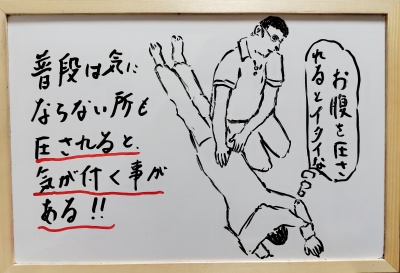 普段は気に
ならない所も
圧されると、
気が付く事が
ある!!
お腹を圧さ
れるとイタイな